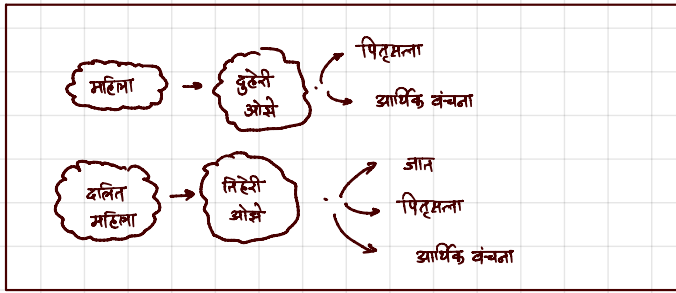 महिला → दुहेरी ओझे → पितृसत्ता
आर्थिक वंचना
दलित महिला → तिहेरी ओझे → जात
पितृसत्ता
आर्थिक वंचना